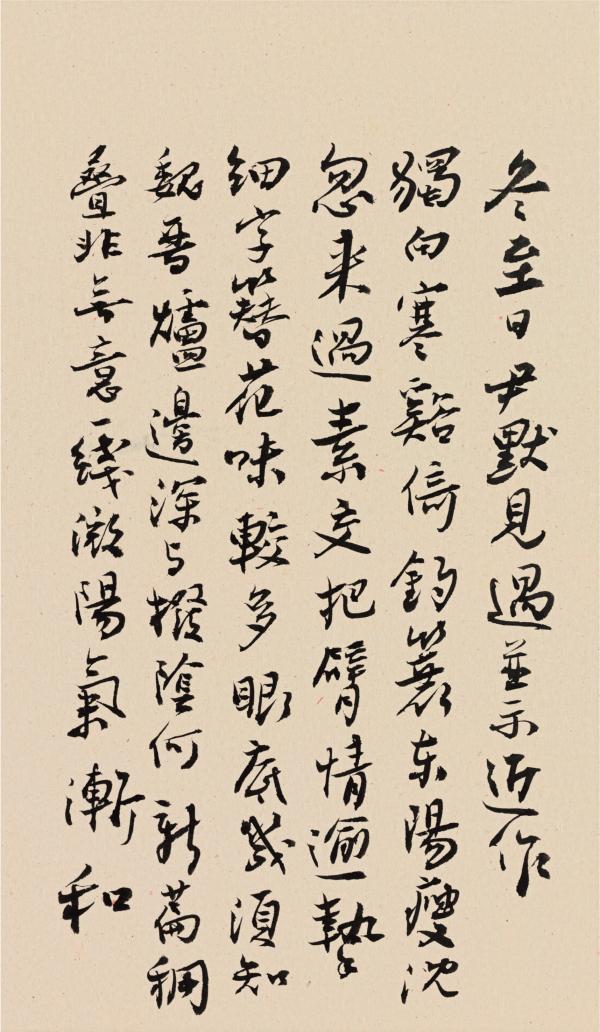 冬至日尹默見過並示近作
獨向寒谿倚釣蓑东陽瘦沈
忽来過素交把臂情逾摯
細字簪花味較多眼底幾須知
魏晋爐邊深与撥陰何新篇稠
疊非無意一綫微陽氣漸和